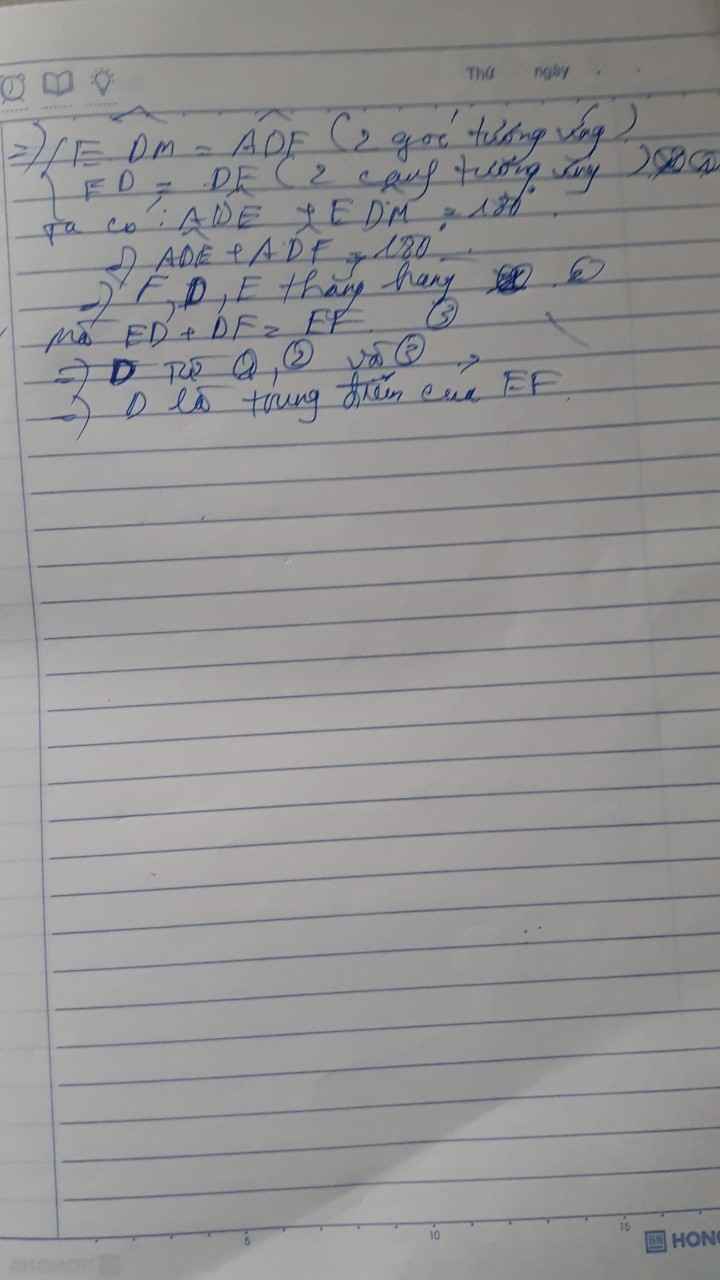 Thứ ngày . .
=> { EDM = ADF (2 góc tương ứng)
ED = DF (2 cạnh tương ứng)
Ta có: ADE + EDM = 180°
=> ADE + ADF = 180
=> F, D, E thẳng hàng ②
mà ED + DF = EF ③
=> D Từ ①, ② và ③
=> D là trung điểm của EF.
5 10 15
HONG